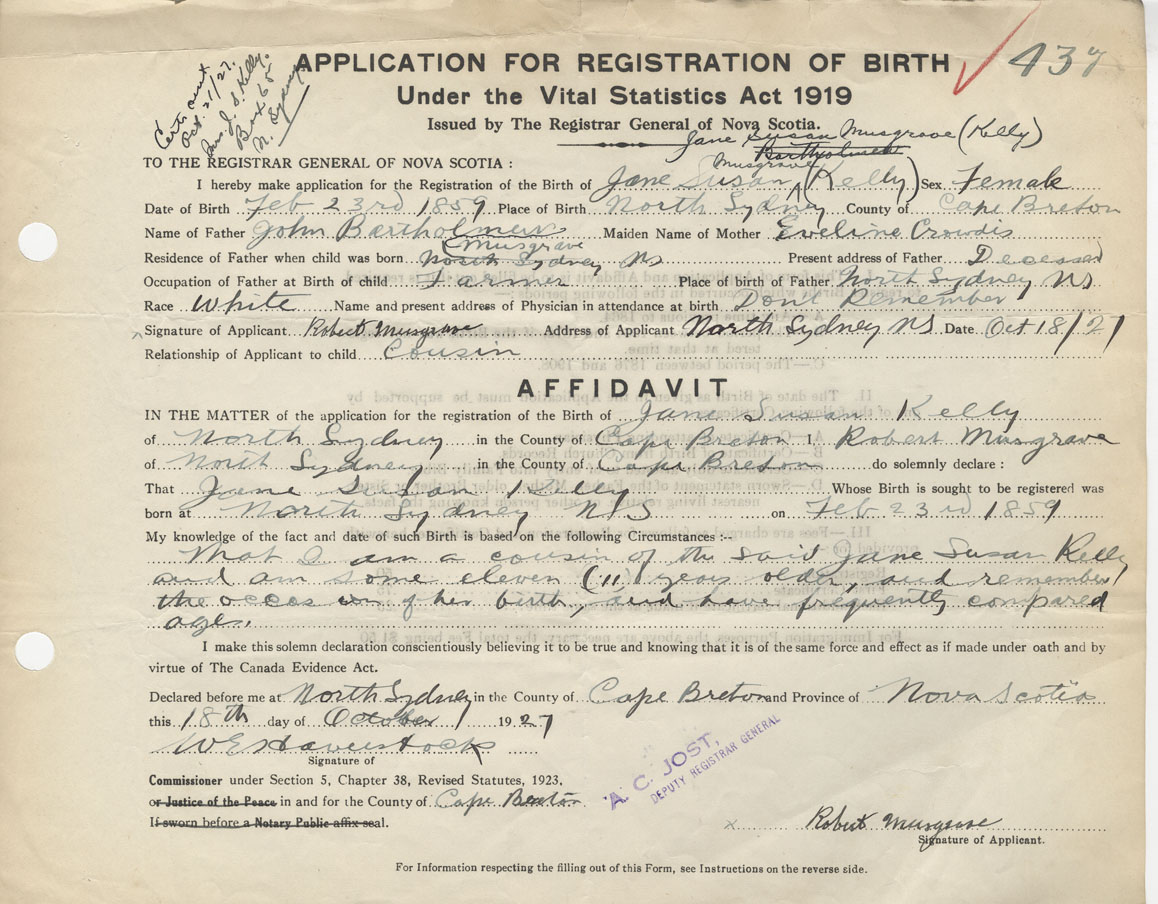 Certs sent
Oct. 21/27.
Mrs. J. S. Kelly.
Box 65
N. Sydney
APPLICATION FOR REGISTRATION OF BIRTH
437
Under the Vital Statistics Act 1919
Issued by The Registrar General of Nova Scotia.
Jane Susan Musgrave (Kelly)
Bartholmew
TO THE REGISTRAR GENERAL OF NOVA SCOTIA :
Musgrave
I hereby make application for the Registration of the Birth of Jane Susan (Kelly) Sex Female
Date of Birth Feb 23rd 1859 Place of Birth North Sydney County of Cape Breton
Name of Father John Bartholmew Maiden Name of Mother Eveline Crowdis
(Musgrave
Residence of Father when child was born North Sydney NS Present address of Father Deceased
Occupation of Father at Birth of child Farmer Place of birth of Father North Sydney NS
Race White Name and present address of Physician in attendance at birth Dont Remember
x Signature of Applicant Robert Musgrave Address of Applicant North Sydney NS Date Oct 18/27
Relationship of Applicant to child Cousin
AFFIDAVIT
IN THE MATTER of the application for the registration of the Birth of Jane Susan Kelly
of North Sydney in the County of Cape Breton I, Robert Musgrave
of North Sydney in the County of Cape Breton do solemnly declare :
That Jane Susan Kelly Whose Birth is sought to be registered was
born at North Sydney NS on Feb 23rd 1859
My knowledge of the fact and date of such Birth is based on the following Circumstances :--
That I am a cousin of the said Jane Susan Kelly
and am some eleven (11) years older, and remember
the occasion of her birth, and have frequently compared
ages.
I make this solemn declaration conscientiously believing it to be true and knowing that it is of the same force and effect as if made under oath and by
virtue of The Canada Evidence Act.
Declared before me at North Sydney in the County of Cape Breton and Province of Nova Scotia
this 18th day of October 1927
W E Haverstock
Signature of
Commissioner under Section 5, Chapter 38, Revised Statutes, 1923,
or Justice of the Peace in and for the County of Cape Breton
If sworn before a Notary Public affix seal.
A. C. JOST,
DEPUTY REGISTRAR GENERAL
x Robert Musgrave
Signature of Applicant.
For Information respecting the filling out of this Form, see Instructions on the reverse side.